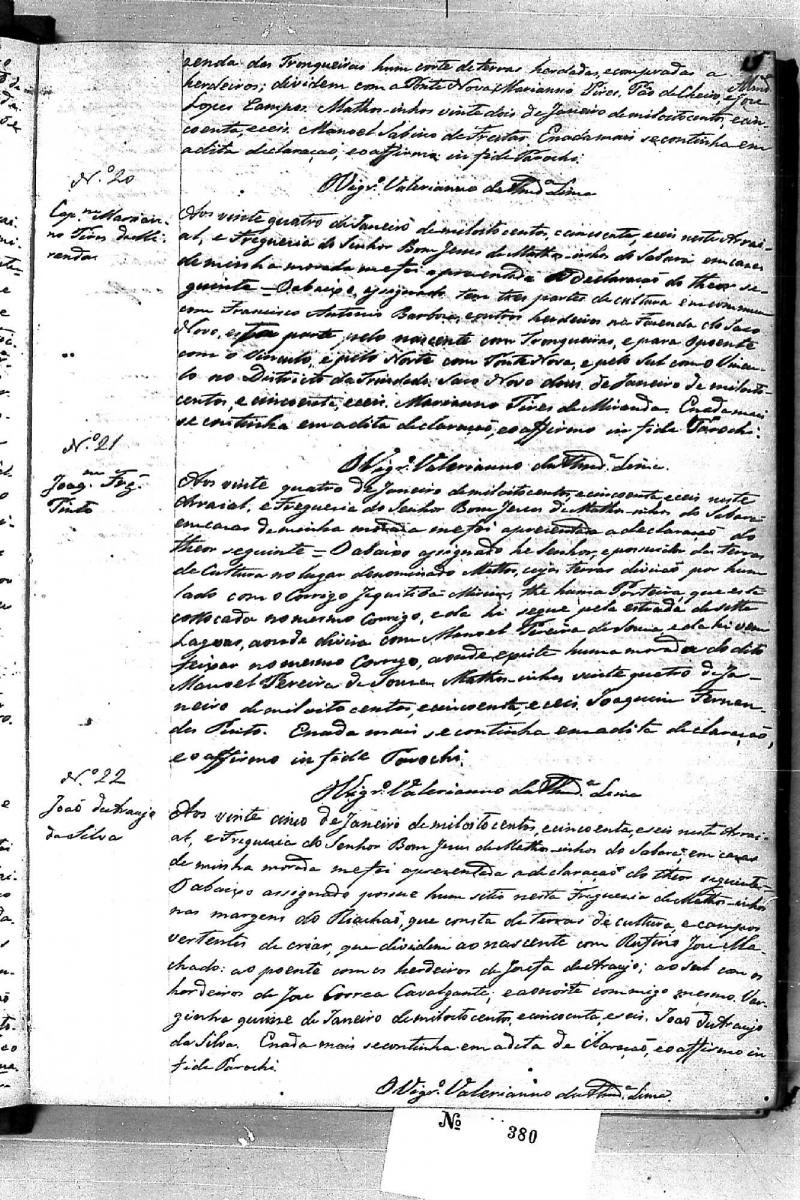 15
zenda das Tronqueiras hum corte de terras herdadas, e compradas a
herdeiros; dividem com a Ponte Nova, Marianno Pires, Páo de Cheiro, e Jose
Lopes Campos. Mathosinhos vinte dois de Janeiro de mil oito centos, e cin-
coenta, e ceis. Manoel Sabino de Freitas. E nada mais se continha em
a dita declaração, e o affirmo in fide Parochi.
O Vigr.o Valerianno de Lima
N.o 20
Cap.m Marian-
no Pires de Mi-
randa
Aos vinte quatro de Janeiro de mil oito centos, e cincoenta, e ceis neste Arrai-
al, e Freguezia do Senhor Bom Jesus de Mathosinhos do Sabará em cazas
de minha morada me foi aprezentada a declaração do theor se-
guinte = O abaixo assignado tem tres partes de cultura em commum
com Francisco Antonio Barboza, e outros herdeiros na Fazenda do Saco
Novo, e parte pelo nascente com Tronqueiras, e para o poente
com o Vinculo, e pelo Norte com Ponte Nova, e pelo Sul com o Vincu-
lo no Districto da Trindade. Saco Novo dous de Janeiro de mil oito
centos, e cincoenta, e ceis. Marianno Pires de Miranda. E nada mais
se continha em a dita declaração, e o affirmo in fide Parochi.
O Vigr.o Valerianno de Lima
N.o 21
Joaq.m Frz
Pinto
Aos vinte quatro de Janeiro de mil oito centos, e cincoenta e ceis neste
Arraial, e Freguezia do Senhor Bom Jesus de Mathosinhos do Sabará
em cazas de minha morada me foi aprezentada a declaração do
theor seguinte = O abaixo assignado he Senhor, e possuidor de terras
de Cultura no lugar denominado Mattos, cujas terras divisão por hum
lado com o Corrigo Jequitibá Mirim, the huma Porteira, que está
collocada no mesmo Corrigo, e da hi segue pela estrada de Sette
Lagoas, aonde divisa com Manoel Pereira de Souza e da hi vem
feixar no mesmo Corrigo, aonde existe huma morada do dito
Manoel Pereira de Souza. Mathosinhos vinte quatro de Ja-
neiro de mil oito centos, e cincoenta, e ceis. Joaquim Fernan-
des Pinto. E nada mais se continha em a dita declaração,
e o affirmo in fide Parochi.
O Vigr.o Valerianno de Lima
N.o 22
João de Araujo
da Silva
Aos vinte cinco de Janeiro de mil oito centos, e cincoenta, e seis neste Arrai-
al, e Freguezia do Senhor Bom Jesus de Mathosinhos do Sabará, em cazas
de minha morada me foi aprezentada a declaração do theor seguinte =
O abaixo assignado possue hum sitio nesta Freguezia de Mathosinhos
nas margens do Riachaõ, que consta de terras de cultura, e campos
vertentes de criar, que dividem ao nascente com Rufino Jose Ma-
chado: ao poente com os herdeiros de Josefa de Araujo; ao Sul com os
herdeiros de Jose Correa Cavalgante; e ao norte comigo mesmo. Var-
ginha quinze de Janeiro de mil oito centos, e cincoenta, e seis. João de Araujo
da Silva. E nada mais se continha em a dita declaração, e o affirmo in
fide Parochi
O Vigr.o Valerianno de Lima
No 380